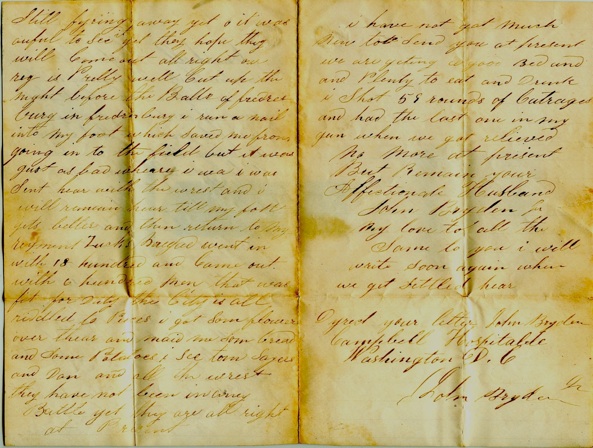 Still fyring away yet o it was
awful to See yet they hope they
will Come out all right our
reg is Pretty well Cut up the
night before the Battle of fredres
burg in fredricburg i run a nail
into my foot which Saved me from
going in to the field but it was
just as bad where i was i was
Sent hear with the wrest and i
will remain hear till my foot
gets better and then return to my
regment went in
with 18 hundred and Came out
with 6 hundred Men that was
fit for Duty the City is all
reduced to i got Som flower
over thear and maid me Som bread
and Some Potatoes i See tom Sayers
and Dan and all the wrest
they have not been in any
Battle yet they are all right
at Present
i have not got much
New to Send you at present
we are geting a good Bed and
and Plenty to eat and Drink
i Shot 58 rounds of Catrages
and had the last one in my
gun when we got relieved
No More at present
But Remain your
Affectionate Husband
John Bryden Jr
My love to all the
Same to you i will
write Soon again when
we get Settled hear
Dyrect your letter John Bryden
Campbell Hospitable
Washington D.C
John Bryden Jr